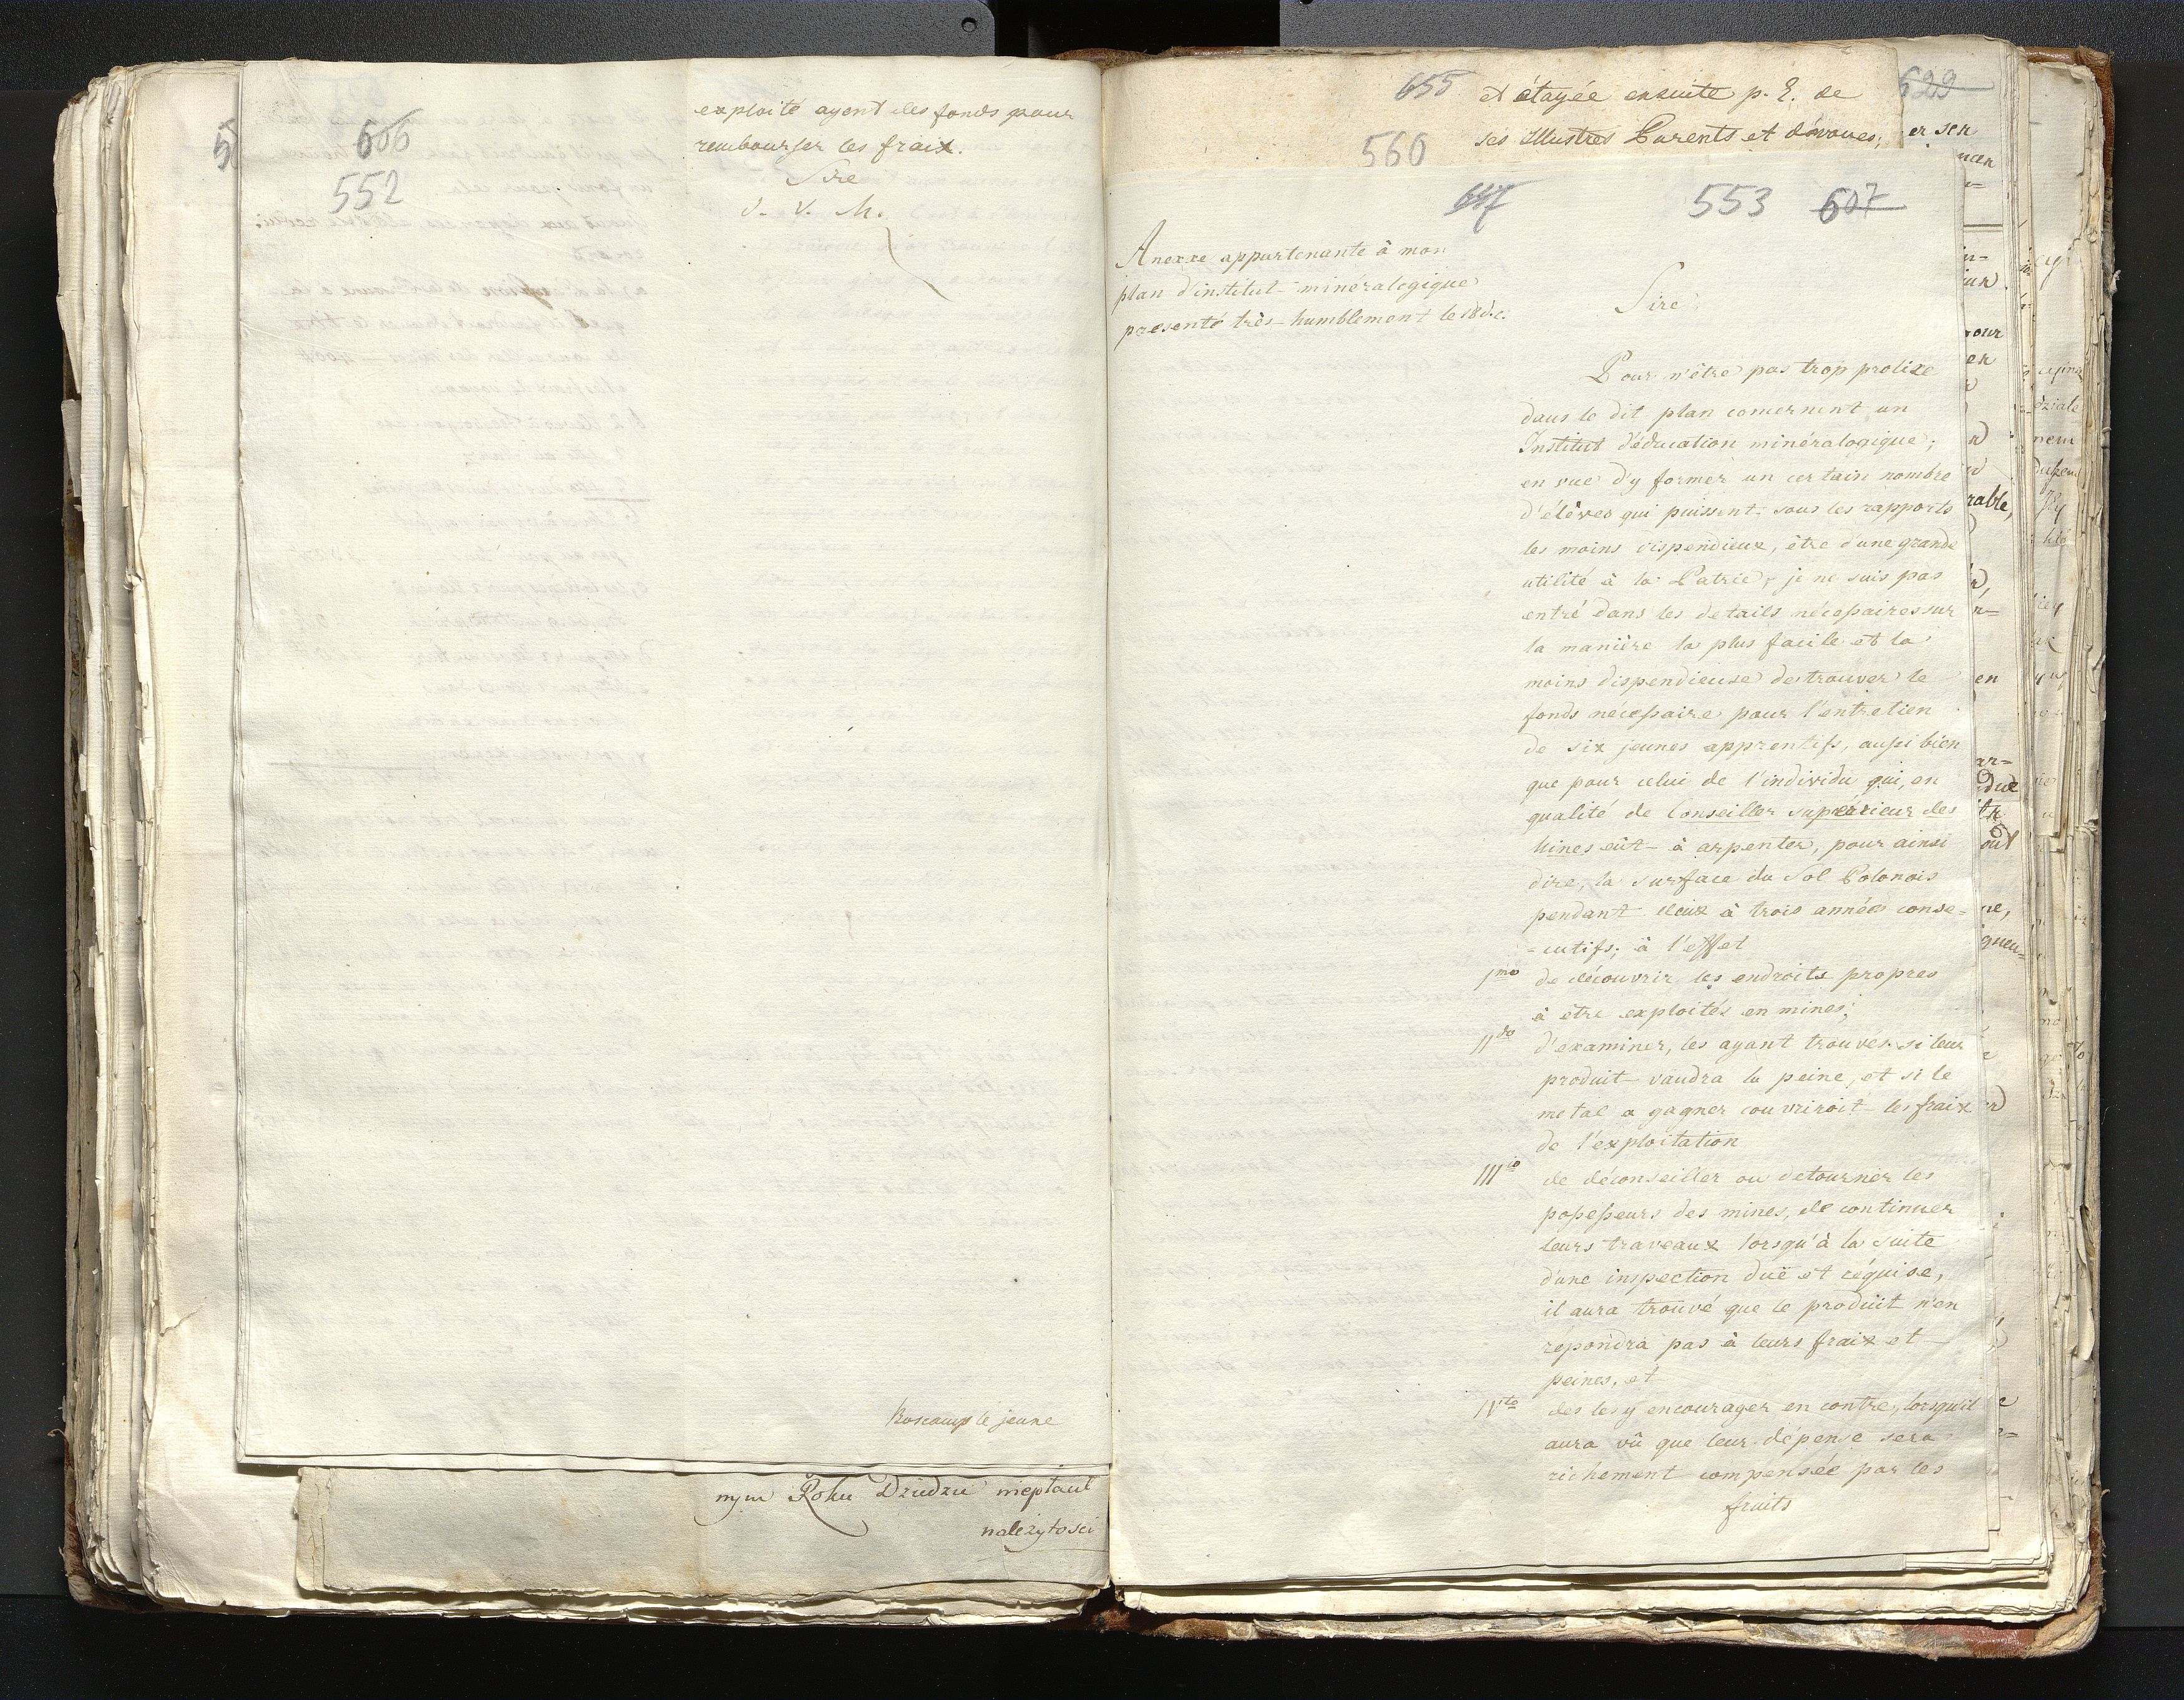 606
552
exploité ayent des fonds pour
rembourser les fraix.
Sire
d. V. M.
Roscamp le jeune
nym Roku Dziedzic nieptacil
należytosci
655
et étayée ensuite p. E. de
629
560
ses Illustres Parents et dévoués;
553 607
Anexxe appartenante à mon
plan d'institut minéralogique
presenté très-humblement le 18 d. c.
Sire
Pour n'être pas trop prolixe
dans le dit plan concernent un
Institut d'éducation minéralogique;
en vue d'y former un certain nombre
d'élèves qui puissent sous les rapports
les moins dispendieux, être d'une grande
utilité à la Patrie, je ne suis pas
entré dans les details nécessaires sur
la manière la plus facile et la
moins dispendieuse de trouver le
fonds necessaire pour l'entretien
de six jeunes apprentifs, aussi bien
que pour celui de l'individu qui, en
qualité de Conseiller supérieur des
Mines eût à arpenter, pour ainsi
dire, la surface du Sol Polonois
pendant deux à trois années conse=
-cutifs; à l'effet
Imo de découvrir les endroits propres
à être exploités en mines;
IIdo d'examiner, les ayant trouvés si leur
produit vaudra la peine, et si le
metal a gagner couvriroit les fraix
de l'exploitation
IIIio de déconseiller ou detourner les
possesseurs des mines, de continuer
leurs traveaux lorsqu'à la suite
d'une inspection duë et réquise,
il aura trouvé que le produit n'en
repondra pas à leurs fraix et
peines, et
IVto des les y encourager en contre, lorsqu'il
aura vû que leur dépense sera
richement compensée par les
fruits